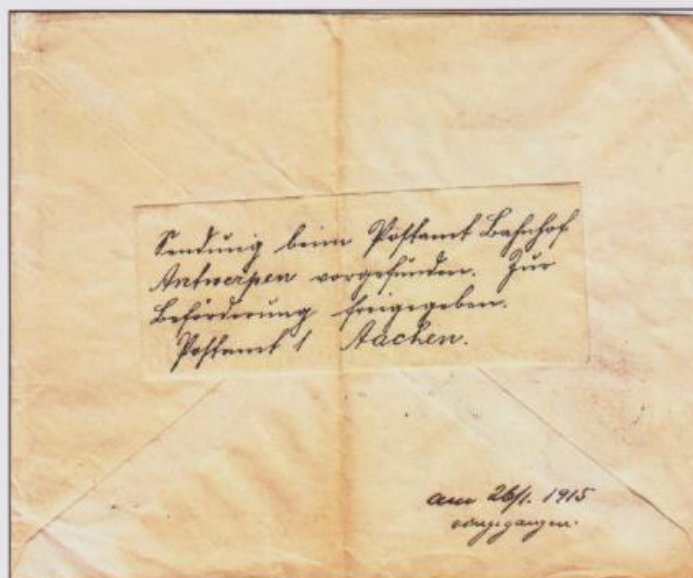 Sendung beim Postamt Bahnhof
Antwerpen vorgefunden. Zur
Beförderung freigegeben.
Postamt 1 Aachen.
am 26/1. 1915
eingegangen.